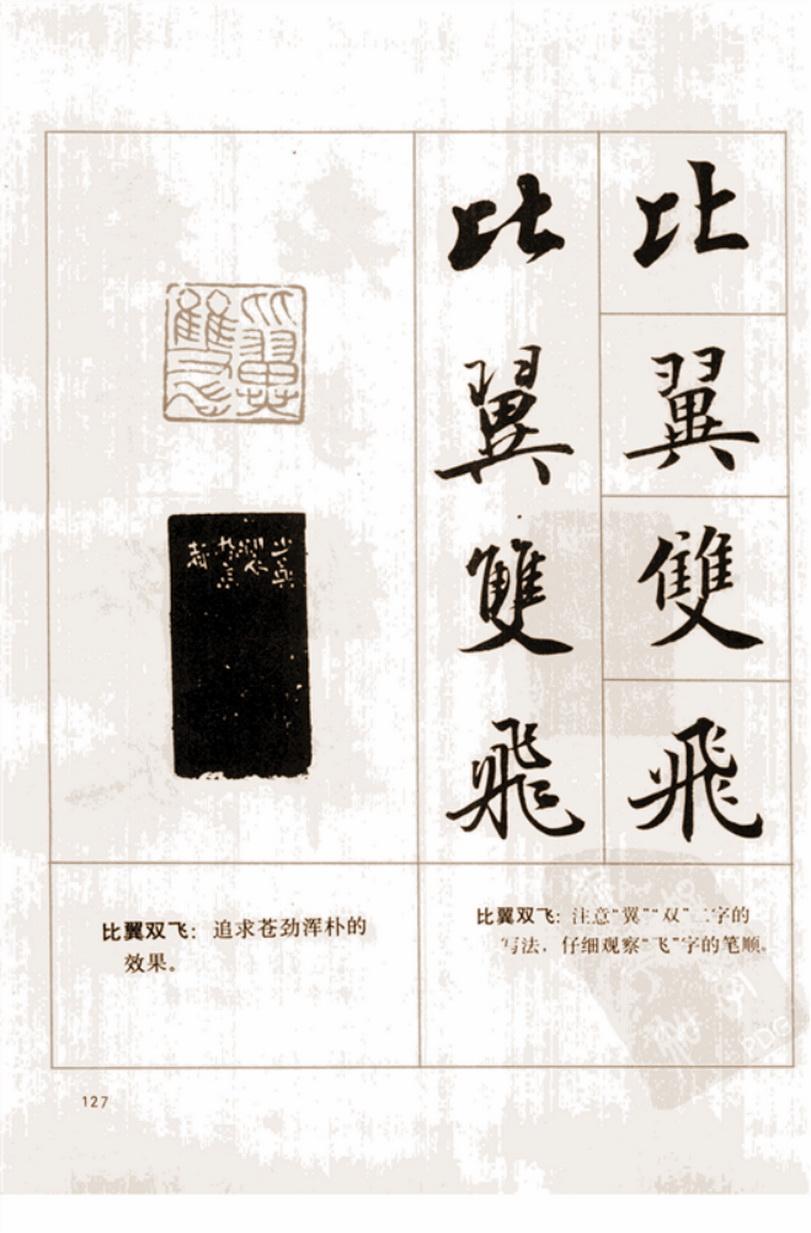 比
翼
雙
飛
比
翼
雙
飛
比翼雙飛
比翼双飞：追求苍劲浑朴的
效果。
比翼双飞：注意“翼”“双”二字的
写法，仔细观察“飞”字的笔顺。
127
PDG